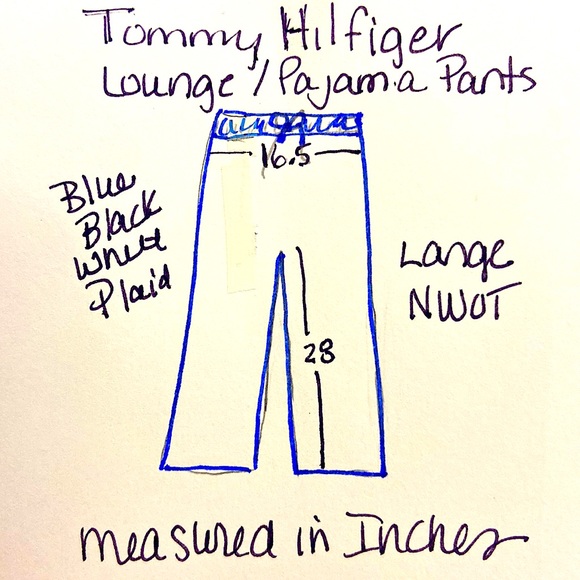 Tommy Hilfiger
Lounge / Pajama Pants
16.5
Blue
Black
White
Plaid
Large
NWOT
28
measured in Inches